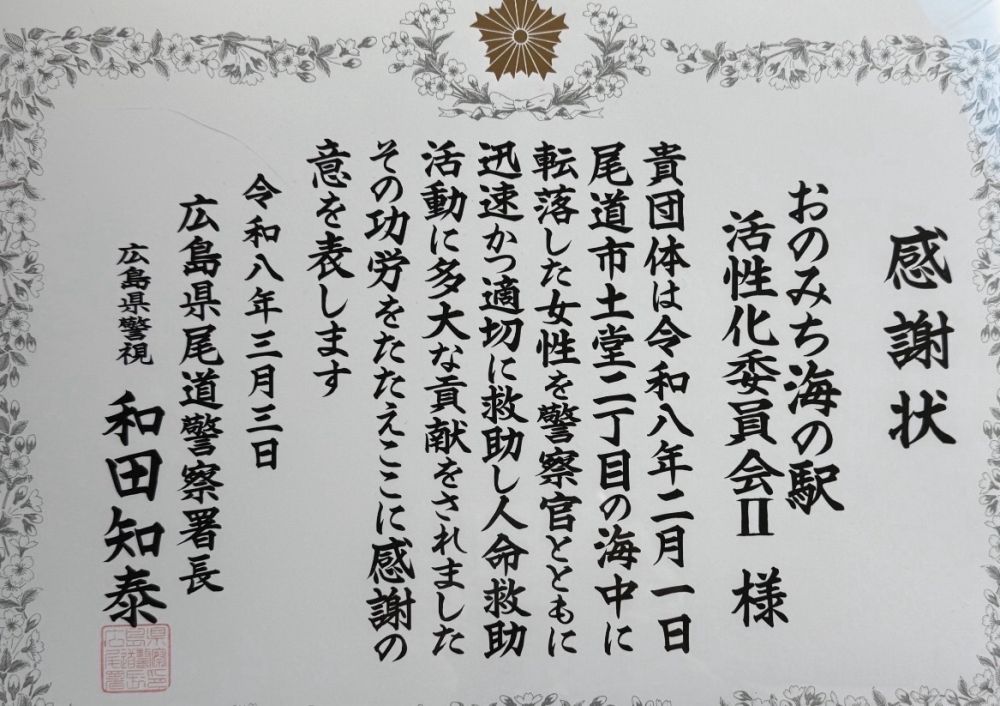 感謝状
おのみち海の駅
活性化委員会Ⅱ 様
貴団体は令和八年二月一日
尾道市土堂二丁目の海中に
転落した女性を警察官とともに
迅速かつ適切に救助し人命救助
活動に多大な貢献をされました
その功労をたたえここに感謝の
意を表します
令和八年三月三日
広島県尾道警察署長
広島県警視 和田知泰